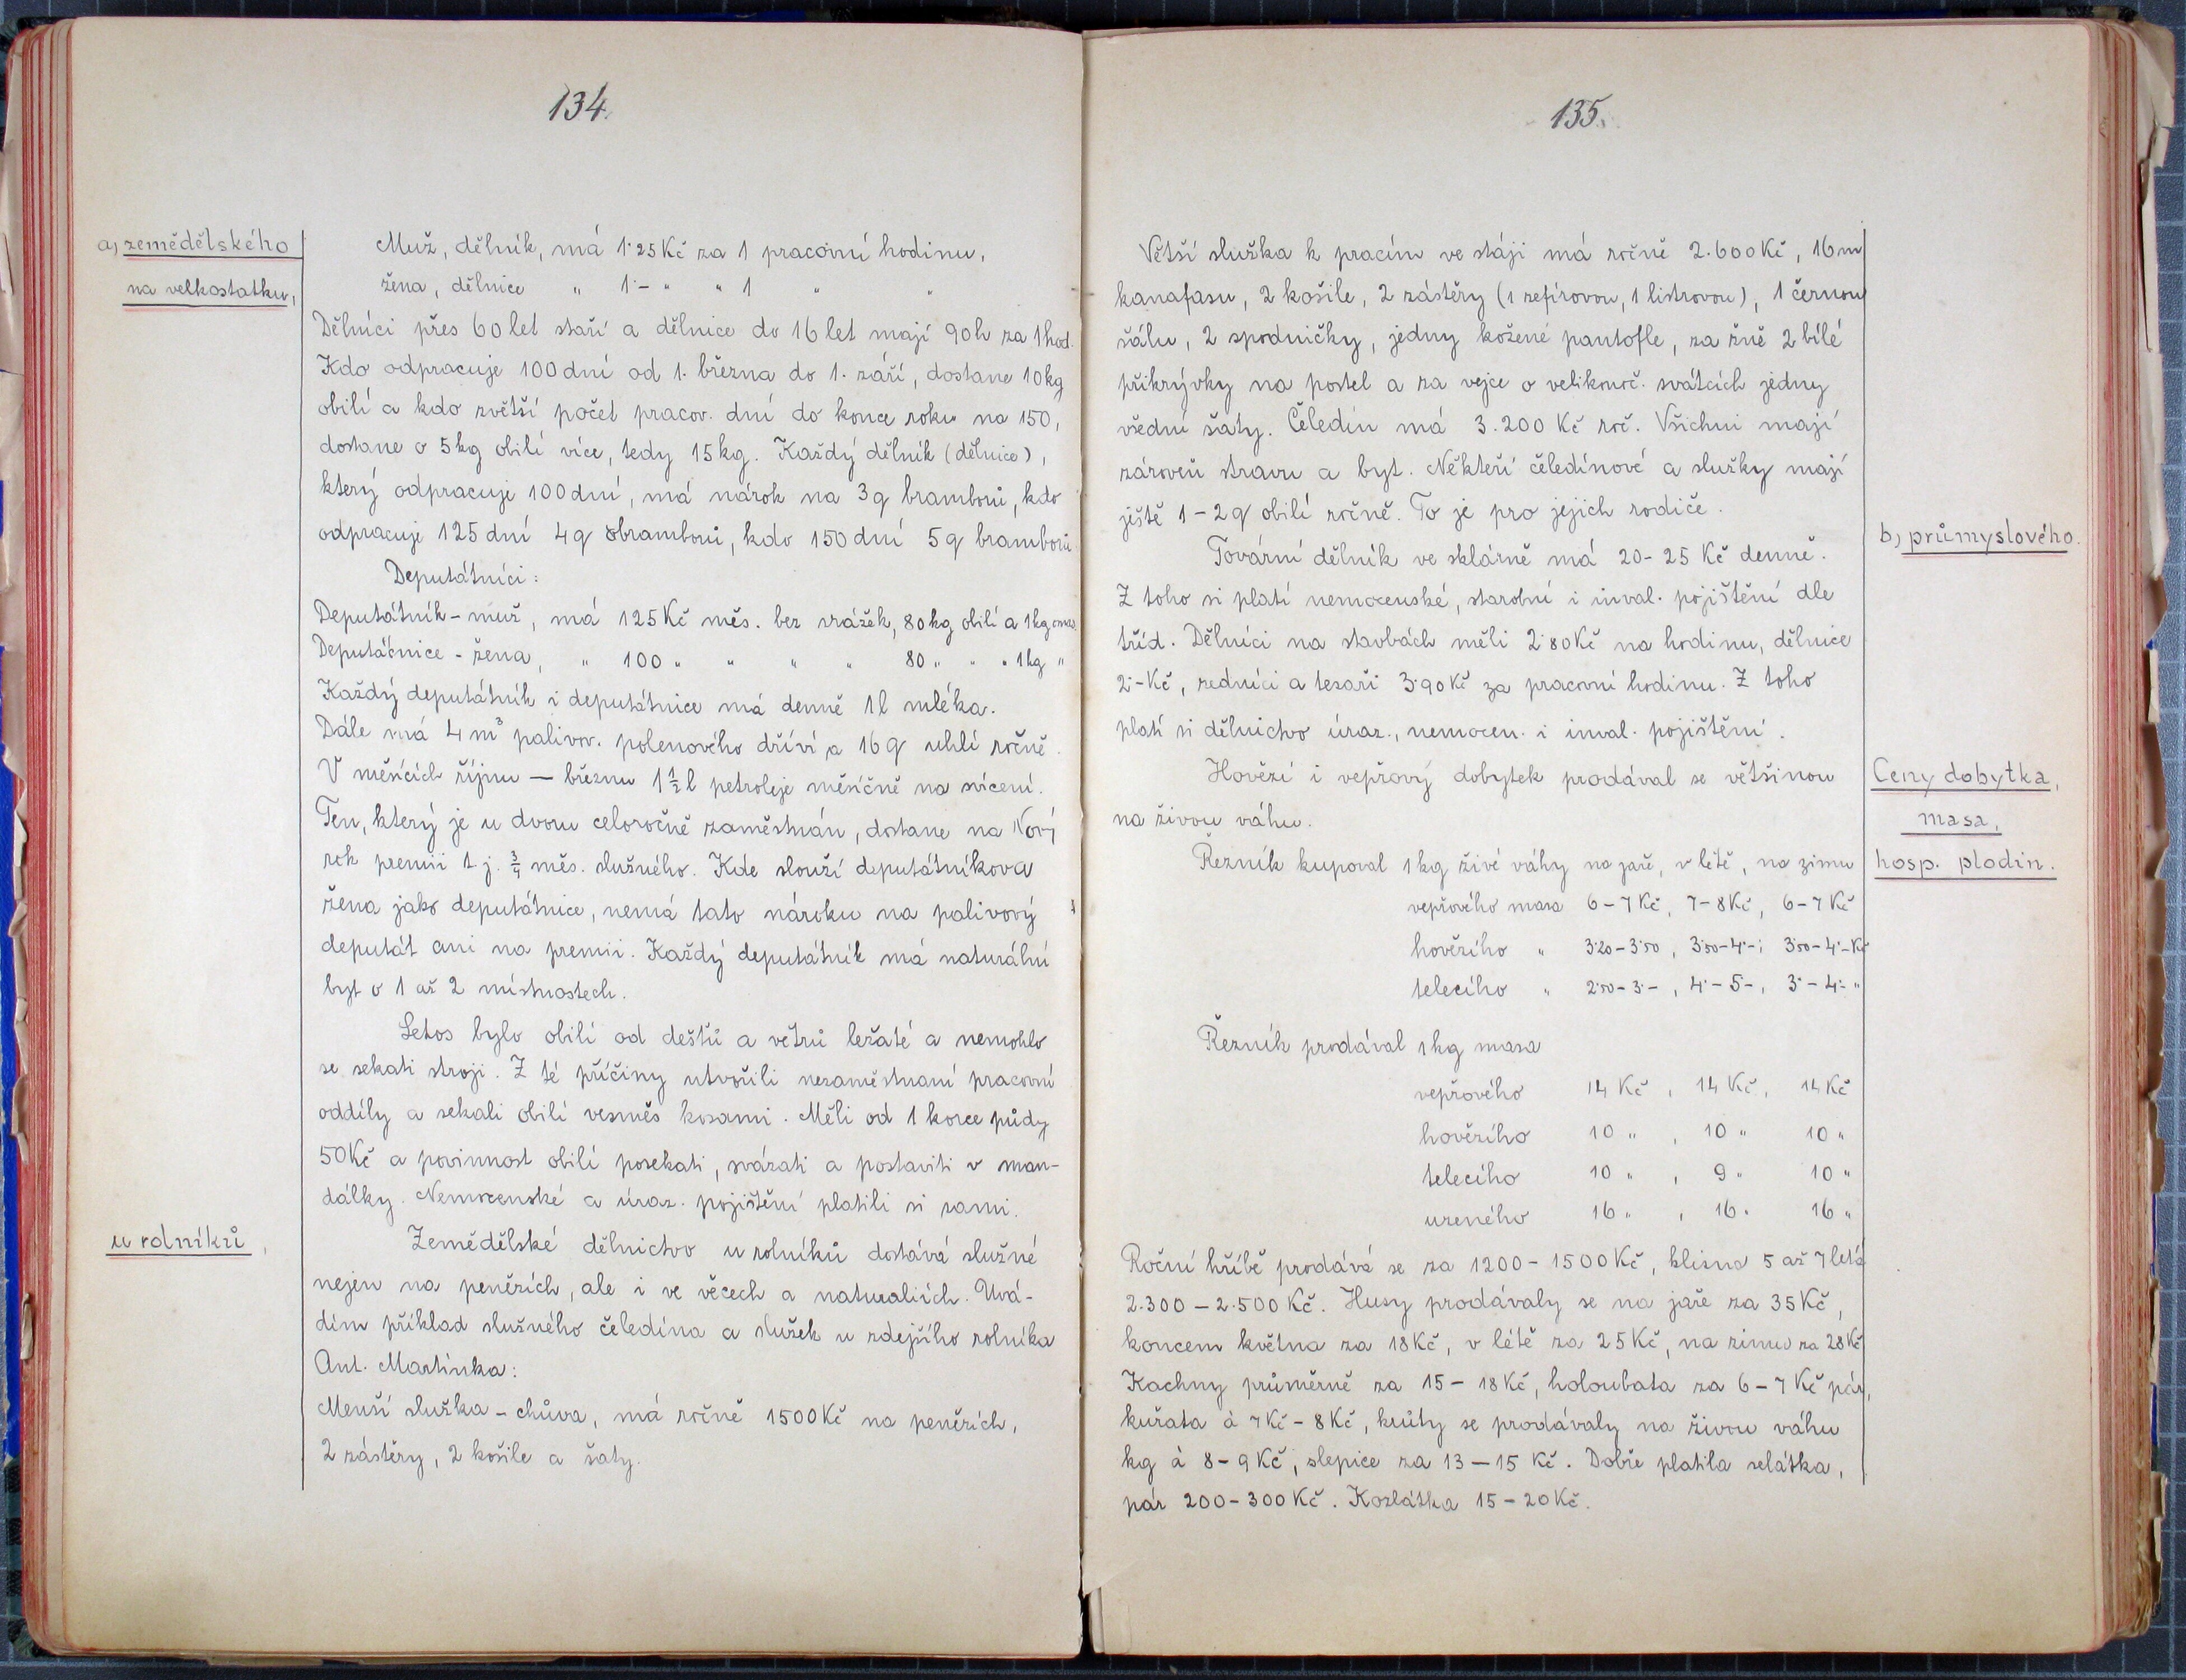 134.
a) zemědělského
na velkostatku,
Muž, dělník, má 1·25 Kč za 1 pracovní hodinu,
žena, dělnice „ 1·– „ „ 1 „ „
Dělníci přes 60 let staří a dělnice do 16 let mají 90 h za 1 hod.
Kdo odpracuje 100 dní od 1. března do 1. září, dostane 10 kg
obilí a kdo zvětší počet pracov. dní do konce roku na 150,
dostane o 5 kg obilí více, tedy 15 kg. Každý dělník (dělnice),
který odpracuje 100 dní, má nárok na 3 q bramborů, kdo
odpracuje 125 dní 4 q bramborů, kdo 150 dní 5 q bramborů.
Deputátníci:
Deputátník - muž, má 125 Kč měs. bez srážek, 80 kg obilí a 1 kg
Deputátnice - žena, „ 100 „ „ „ „ 80 „ „ „ 1 kg „
Každý deputátník i deputátnice má denně 1 l mléka.
Dále má 4 m³ palivov. polenového dříví a 16 q uhlí ročně.
V měsících říjnu — březnu 1 ½ l petroleje měsíčně na svícení.
Ten, který je u dvora celoročně zaměstnán, dostane na Nový
rok premii t. j. ¾ měs. služného. Kde slouží deputátníkova
žena jako deputátnice, nemá tato nároku na palivový
deputát ani na premii. Každý deputátník má naturální
byt o 1 až 2 místnostech.
Letos bylo obilí od dešťů a větrů ležaté a nemohlo
se sekati stroji. Z té příčiny utvořili nezaměstnaní pracovní
oddíly a sekali obilí vesměs kosami. Měli od 1 korce půdy
50 Kč a povinnost obilí posekati, svázati a postaviti v man-
dálky. Nemocenské a úraz. pojištění platili si sami.
u rolníků,
Zemědělské dělnictvo u rolníků dostává služné
nejen na penězích, ale i ve věcech a naturaliích. Uvá-
dím příklad služného čeledína a služek u zdejšího rolníka
Ant. Martínka:
Menší služka - chůva, má ročně 1500 Kč na penězích,
2 zástěry, 2 košile a šaty.
135.
Větší služka k pracím ve stáji má ročně 2.600 Kč, 16 m
kanafasu, 2 košile, 2 zástěry (1 zefírovou, 1 listrovou), 1 černou
šálu, 2 spodničky, jedny kožené pantofle, za žně 2 bílé
přikrývky na postel a za vejce o velikonoč. svátcích jedny
všední šaty. Čeledín má 3.200 Kč roč. Všichni mají
zároveň stravu a byt. Někteří čeledínové a služky mají
ještě 1 - 2 q obilí ročně. To je pro jejich rodiče.
b) průmyslového.
Tovární dělník ve sklárně má 20 - 25 Kč denně.
Z toho si platí nemocenské, starobní i inval. pojištění dle
tříd. Dělníci na stavbách měli 2·80 Kč na hodinu, dělnice
2·- Kč, zedníci a tesaři 3·90 Kč za pracovní hodinu. Z toho
platí si dělnictvo úraz., nemocen. i inval. pojištění.
Ceny dobytka,
masa,
hosp. plodin.
Hovězí i vepřový dobytek prodával se většinou
na živou váhu.
Řezník kupoval 1 kg živé váhy na jaře, v létě, na zimu
vepřového masa 6 - 7 Kč, 7 - 8 Kč, 6 - 7 Kč
hovězího „ 3·20 - 3·50, 3·50 - 4·-; 3·50 - 4·- Kč
telecího „ 2·50 - 3·-, 4·- 5-, 3·- 4·- „
Řezník prodával 1 kg masa
vepřového 14 Kč, 14 Kč, 14 Kč
hovězího 10 „ , 10 „ 10 „
telecího 10 „ , 9 „ 10 „
uzeného 16 „ , 16 „ 16 „
Roční hříbě prodává se za 1200 - 1500 Kč, klisna 5 až 7 letá
2.300 - 2.500 Kč. Husy prodávaly se na jaře za 35 Kč,
koncem května za 18 Kč, v létě za 25 Kč, na zimu za 28 Kč
Kachny průměrně za 15 - 18 Kč, holoubata za 6 - 7 Kč pár,
kuřata à 7 Kč - 8 Kč, krůty se prodávaly na živou váhu
kg à 8 - 9 Kč, slepice za 13 - 15 Kč. Dobře platila selátka,
pár 200 - 300 Kč. Kozlátka 15 - 20 Kč.